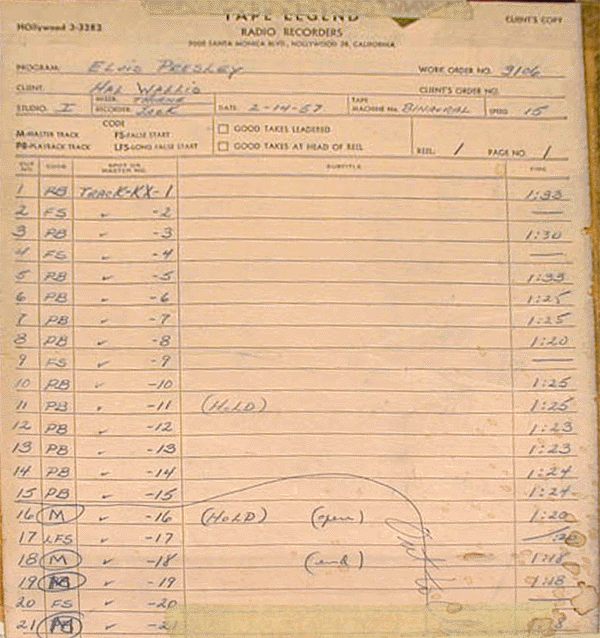 TAPE LEGEND
HOllywood 3-3283 RADIO RECORDERS CLIENT'S COPY
7000 SANTA MONICA BLVD., HOLLYWOOD 38, CALIFORNIA
PROGRAM: ELVIS PRESLEY WORK ORDER NO. 9106
CLIENT: HAL WALLIS CLIENT'S ORDER NO.
STUDIO: I MIXER: THORNE RECORDER: JACK DATE: 2-14-57 TAPE MACHINE No. BINAURAL SPEED 15
CODE
M-MASTER TRACK FS-FALSE START GOOD TAKES LEADERED
PB-PLAYBACK TRACK LFS-LONG FALSE START GOOD TAKES AT HEAD OF REEL REEL 1 PAGE NO. 1
CUT NO. CODE SPOT OR MASTER NO. SUBTITLE TIME
1 PB TRACK-KX-1 1:33
2 FS ✓ -2 —
3 PB ✓ -3 1:30
4 FS ✓ -4 —
5 PB ✓ -5 1:33
6 PB ✓ -6 1:25
7 PB ✓ -7 1:25
8 PB ✓ -8 1:20
9 FS ✓ -9 —
10 PB ✓ -10 1:25
11 PB ✓ -11 (HOLD) 1:25
12 PB ✓ -12 1:23
13 PB ✓ -13 1:23
14 PB ✓ -14 1:24
15 PB ✓ -15 1:24
16 M ✓ -16 (HOLD) (open) 1:20
17 LFS ✓ -17
18 M ✓ -18 (end) 1:18
19 ✓ -19 1:18
20 FS ✓ -20
21 ✓ -21 8